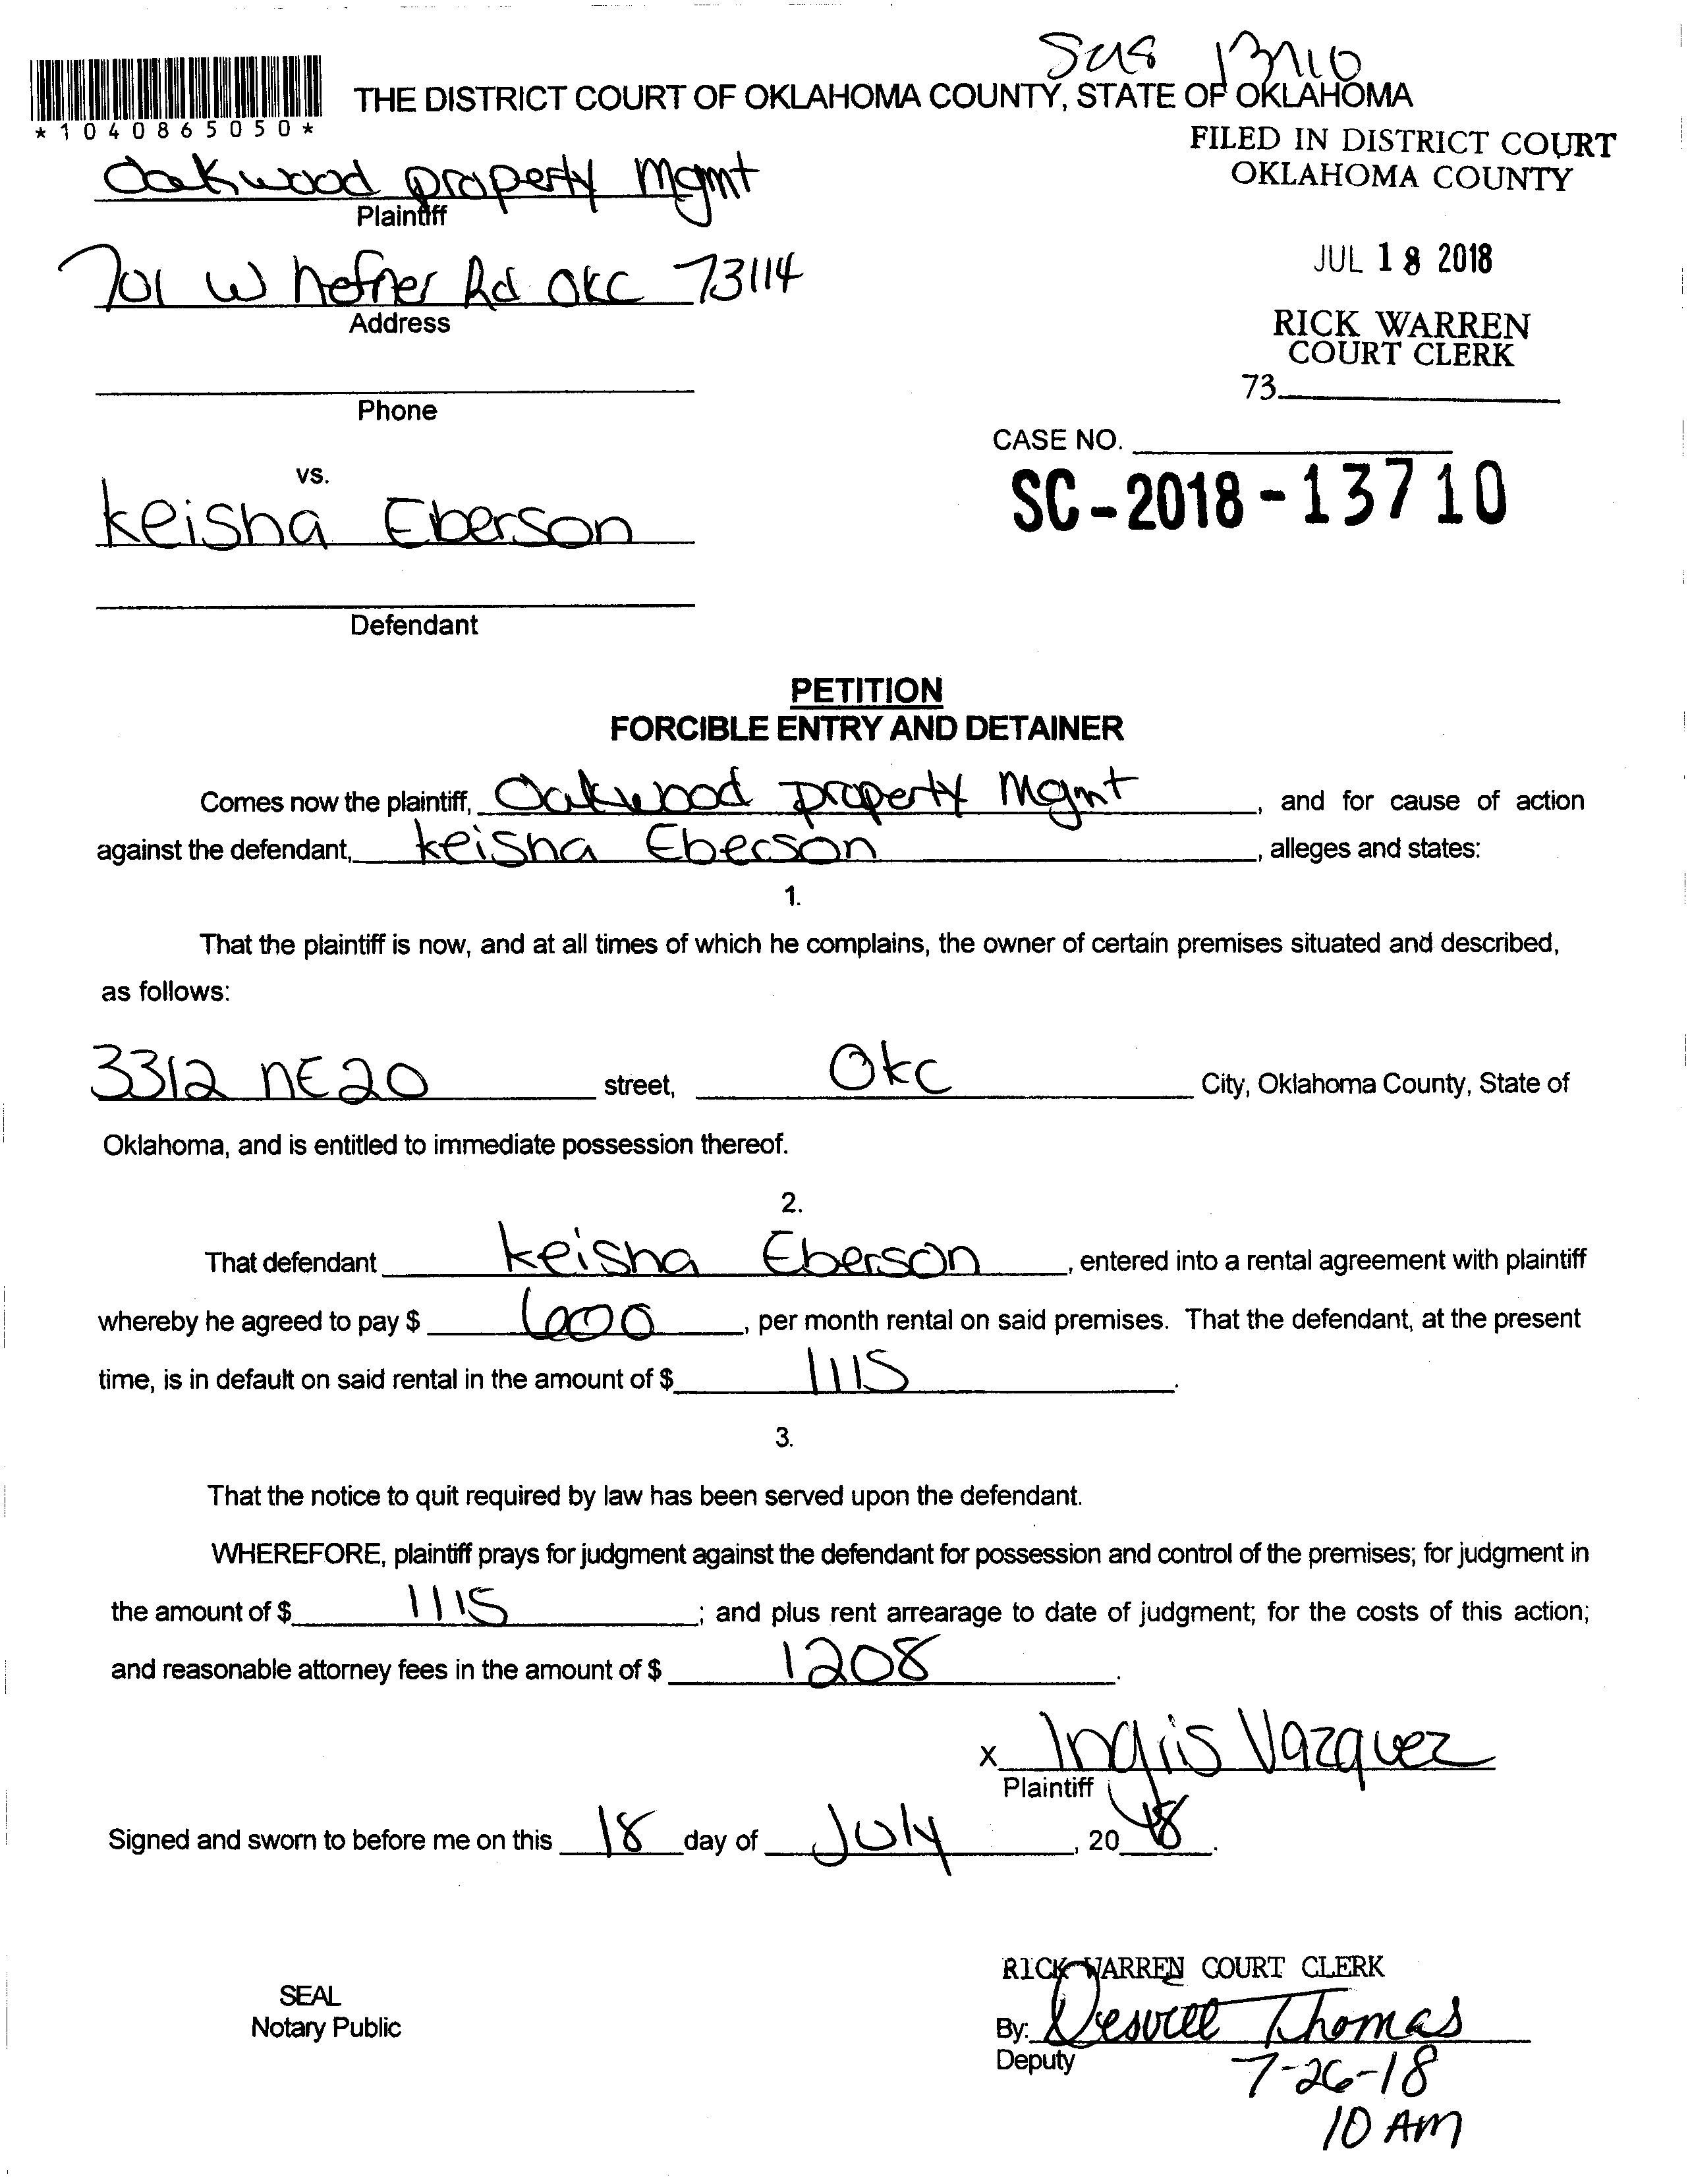 13710
THE DISTRICT COURT OF OKLAHOMA COUNTY, STATE OF OKLAHOMA
*1040865050*
FILED IN DISTRICT COURT
OKLAHOMA COUNTY
Oakwood property Mgmt
Plaintiff
JUL 18 2018
701 W hefner Rd OKC 73114
Address
RICK WARREN
COURT CLERK
73
Phone
CASE NO.
SC-2018-13710
vs.
keisha Eberson
Defendant
PETITION
FORCIBLE ENTRY AND DETAINER
Comes now the plaintiff, Oakwood property Mgmt, and for cause of action
against the defendant, keisha Eberson, alleges and states:
1.
That the plaintiff is now, and at all times of which he complains, the owner of certain premises situated and described,
as follows:
3312 NE 20 street, OKC City, Oklahoma County, State of
Oklahoma, and is entitled to immediate possession thereof.
2.
That defendant keisha Eberson, entered into a rental agreement with plaintiff
whereby he agreed to pay $ 600, per month rental on said premises. That the defendant, at the present
time, is in default on said rental in the amount of $ 1115.
3.
That the notice to quit required by law has been served upon the defendant.
WHEREFORE, plaintiff prays for judgment against the defendant for possession and control of the premises; for judgment in
the amount of $ 1115; and plus rent arrearage to date of judgment; for the costs of this action;
and reasonable attorney fees in the amount of $ 1208.
x Ingris Vazquez
Plaintiff
Signed and sworn to before me on this 18 day of July, 2018.
RICK WARREN COURT CLERK
SEAL
Notary Public
By: Thomas
Deputy
7-26-18
10 AM